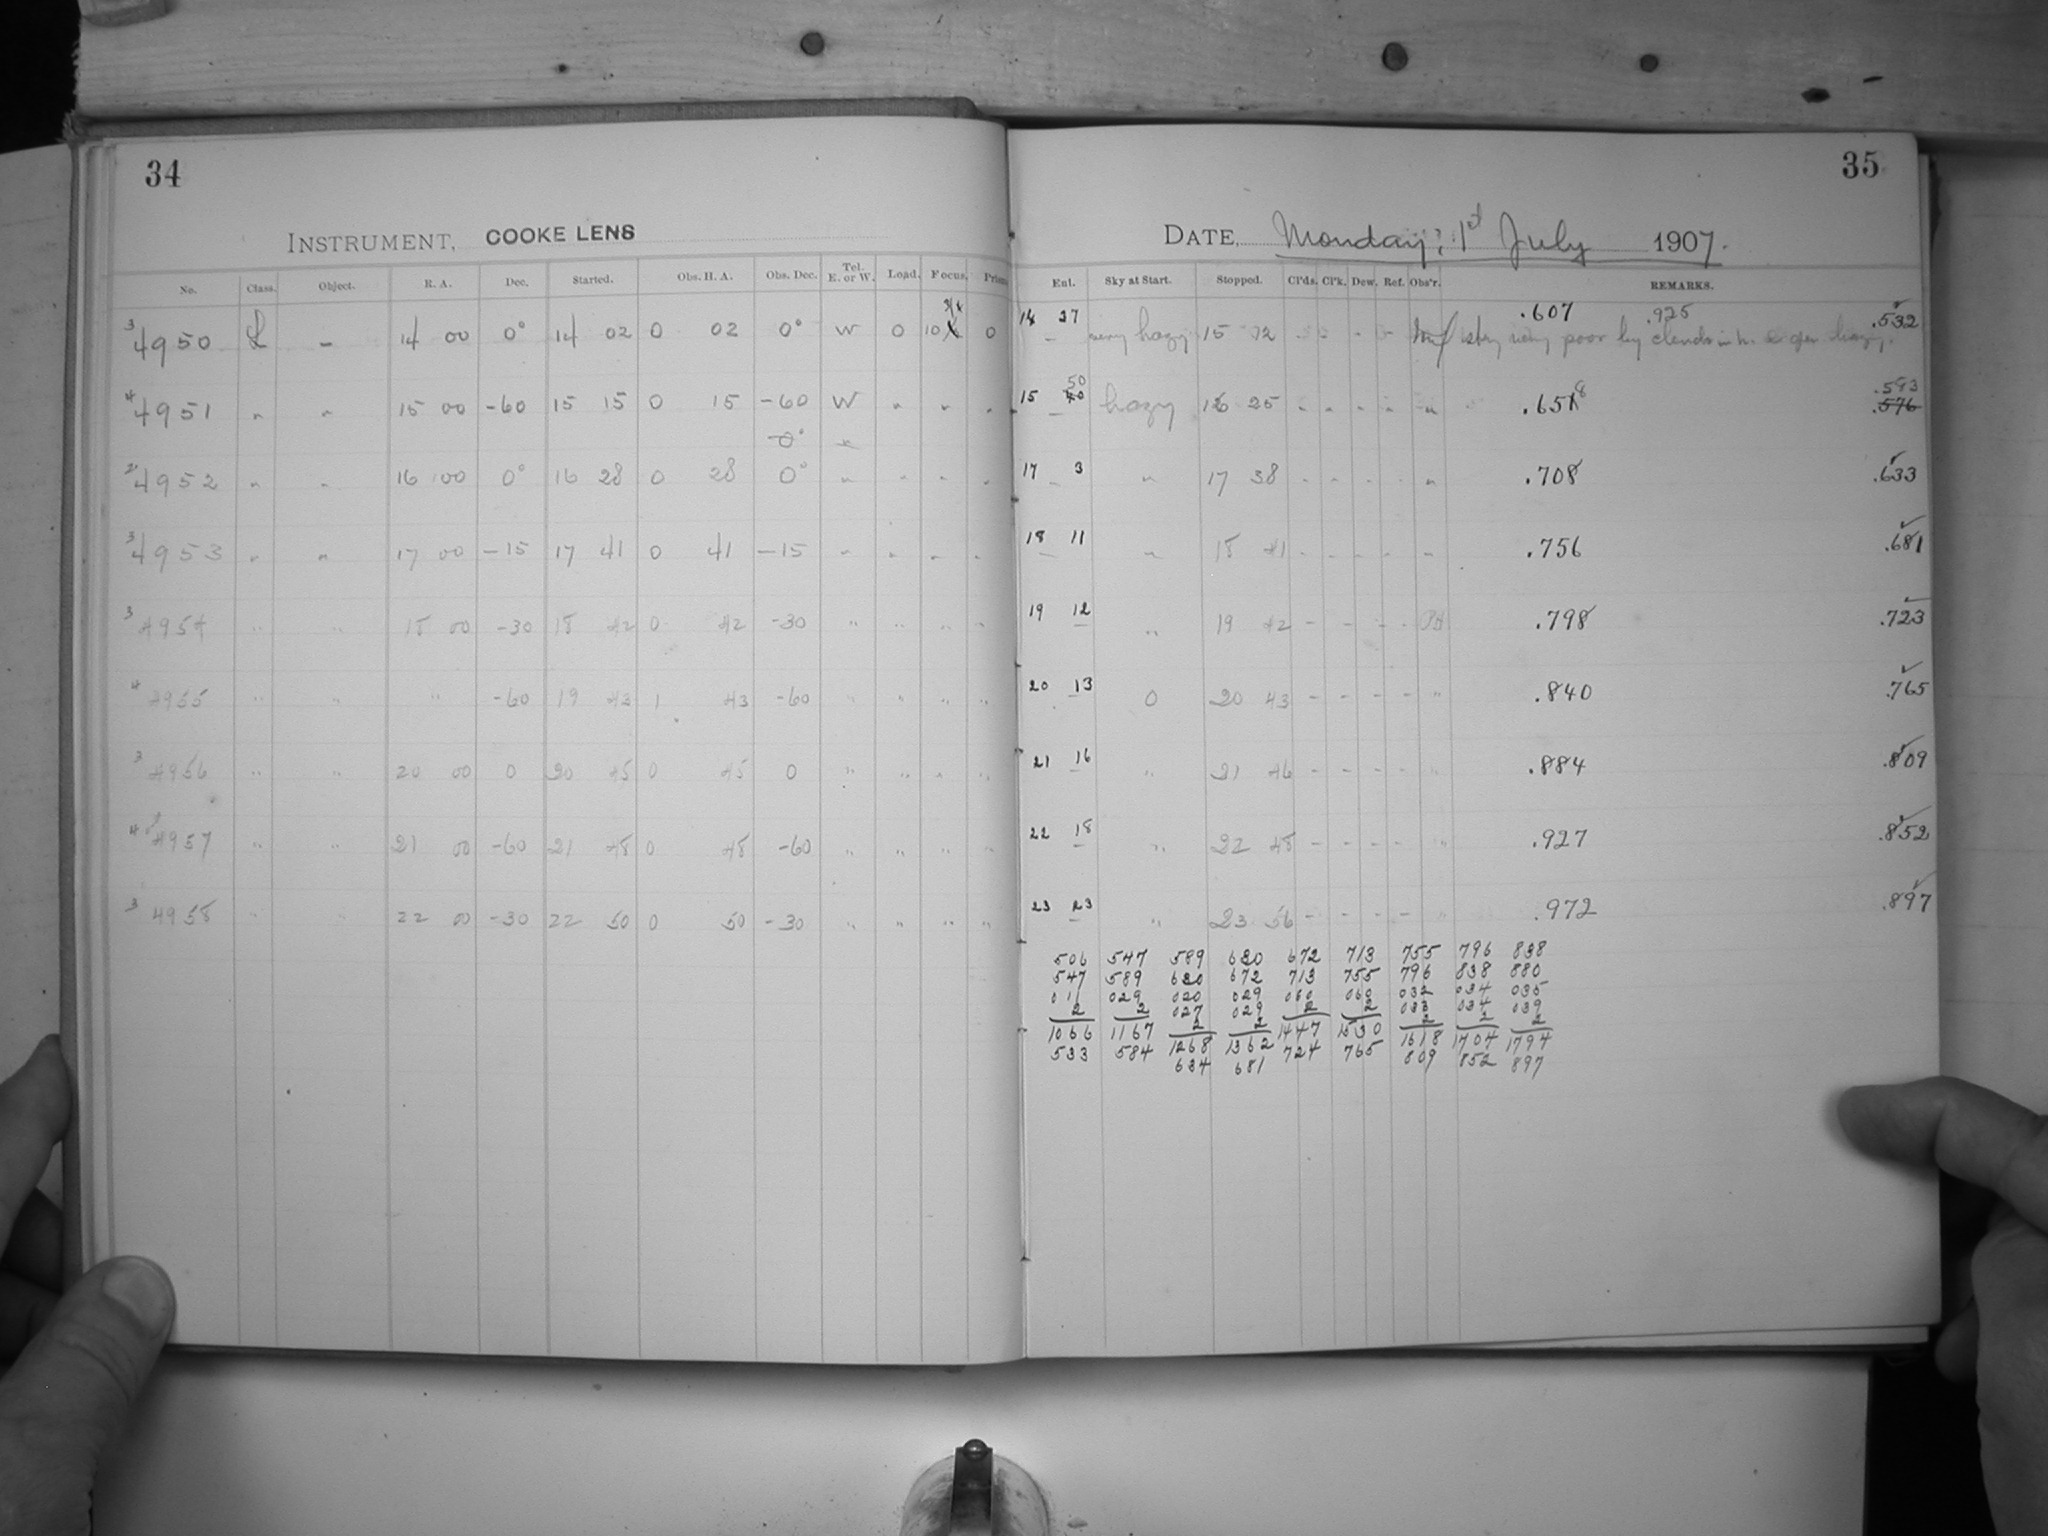 34
INSTRUMENT, COOKE LENS
No. Class. Object. R. A. Dec. Started. Obs. H. A. Obs. Dec. Tel. E. or W. Load. Focus. Prism
3 4950 L - 14 00 0° 14 02 0 02 0° W 0 10 0
4 4951 " " 15 00 -60 15 15 0 15 -60 W " " "
-0° "
2 4952 " " 16 00 0° 16 28 0 28 0° " " " "
3 4953 " " 17 00 -15 17 41 0 41 -15 " " " "
3 4954 " " 18 00 -30 18 42 0 42 -30 " " " "
4 4955 " " " -60 19 43 1 43 -60 " " " "
3 4956 " " 20 00 0 20 45 0 45 0 " " " "
4 4957 " " 21 00 -60 21 48 0 48 -60 " " " "
3 4958 " " 22 00 -30 22 50 0 50 -30 " " " "
35
DATE, Monday, 1st July 1907.
Ent. Sky at Start. Stopped. Cl'ds. Cl'k. Dew. Ref. Obs'r. REMARKS.
14 37 very hazy 15 12 - - - - .607 .925 .532
sky very poor by clouds in
15 50 hazy 16 25 - - - - " .658 .593
.576
17 3 " 17 38 - - - - " .708 .633
18 11 " 18 41 - - - - " .756 .681
19 12 " 19 42 - - - - .798 .723
20 13 0 20 43 - - - - " .840 .765
21 16 " 21 46 - - - - " .884 .809
22 18 " 22 48 - - - - " .927 .852
23 23 " 23 56 - - - - " .972 .897
506 547 589 630 672 713 755 796 838
547 589 630 672 713 755 796 838 880
011 029 020 029 060 060 032 034 035
2 2 027 029 2 2 033 034 039
2 2 2 2 2
1066 1167 1268 1362 1447 1530 1618 1704 1794
533 584 634 681 724 765 809 852 897